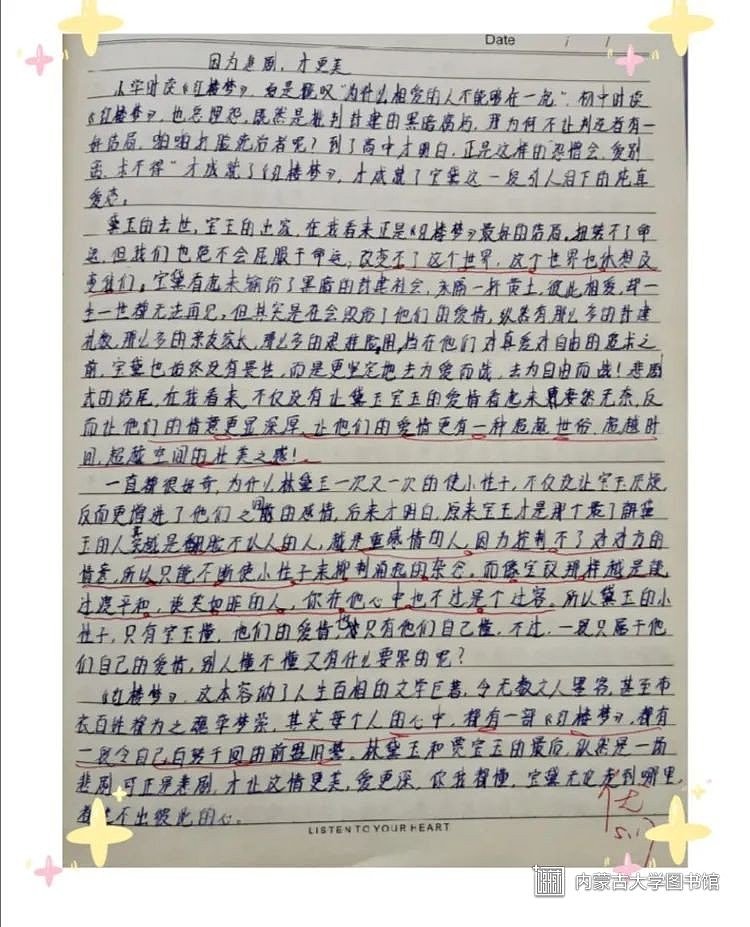 Date / /
因为悲剧，才更美
小学时读《红楼梦》，自是慨叹“为什么相爱的人不能够在一起”，初中时读
《红楼梦》，也忽埋怨，既然是批判封建的黑暗腐朽，那为何不让判逆者有一
好结局，啪啪打脸统治者呢？到了高中才明白，正是这样的“怨憎会，爱别
离，求不得”才成就了《红楼梦》，才成就了宝黛这一段引人泪下的纯真
爱恋。
黛玉的去世，宝玉的出家，在我看来正是《红楼梦》最好的结局，扭转不了命
运，但我们也绝不会屈服于命运，改变不了这个世界，这个世界也休想改
变我们。宝黛看起来输给了黑暗的封建社会，永隔一抔黄土，彼此相爱，却一
生一世都无法再见，但其实是在会毁了他们的爱情，纵然有那么多的封建
礼教，那么多的亲友家长，那么多的艰难险阻，挡在他们对真爱对自由的追求之
前，宝黛也始终没有畏怯，而是更坚定地去为爱而战，去为自由而战！悲剧
式的结尾，在我看来，不仅没有让黛玉宝玉的爱情看起来索然无奈，反
而让他们的情意更显深厚，让他们的爱情更有一种超越世俗，超越时
间，超越空间的壮美之感！
一直都很好奇，为什么林黛玉一次又一次的使小性子，不仅没让宝玉厌烦，
反而更增进了他们之间的感情，后来才明白，原来宝玉才是那个最了解黛
玉的人，其实越是翻脸不认人的人，越是重感情的人，因为控制不了对对方的
情意，所以只能不断使小性子来抑制消耗的杂念，而像宝钗那样越是能
过渡平和，谈笑如昨的人，你在他心中也不过是个过客。所以黛玉的小
性子，只有宝玉懂，他们的爱情，也只有他们自己懂，不过，一段只属于他
们自己的爱情，别人懂不懂又有什么要累的呢？
《红楼梦》，这本容纳了人生百相的文学巨著，令无数文人墨客，甚至布
衣百姓都为之魂牵梦萦，其实每个人的心中，都有一部《红楼梦》，都有
一段令自己百转千回的前盟旧梦。林黛玉和贾宝玉的最后，纵然是一场
悲剧，可正是悲剧，才让这情更美，爱更深，你我都懂，宝黛无论走到哪里，
都走不出彼此的心。
LISTEN TO YOUR HEART
优
5.17
内蒙古大学图书馆